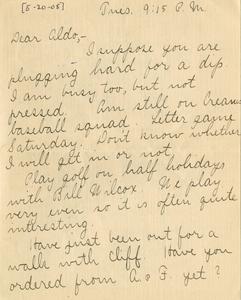 [5-20-05]
Tues. 9:15 P.M.
Dear Aldo;-
I suppose you are
plugging hard for a dip.
I am busy too, but not
pressed. Am still on Cream
baseball squad. Letter game
Saturday. Don't know whether
I will get in or not.
Play golf on half holidays
with Bill Wilcox. We play
very even so it is often quite
interesting.
Have just been out for a
walk with Cliff. Have you
ordered from A. & F. yet?